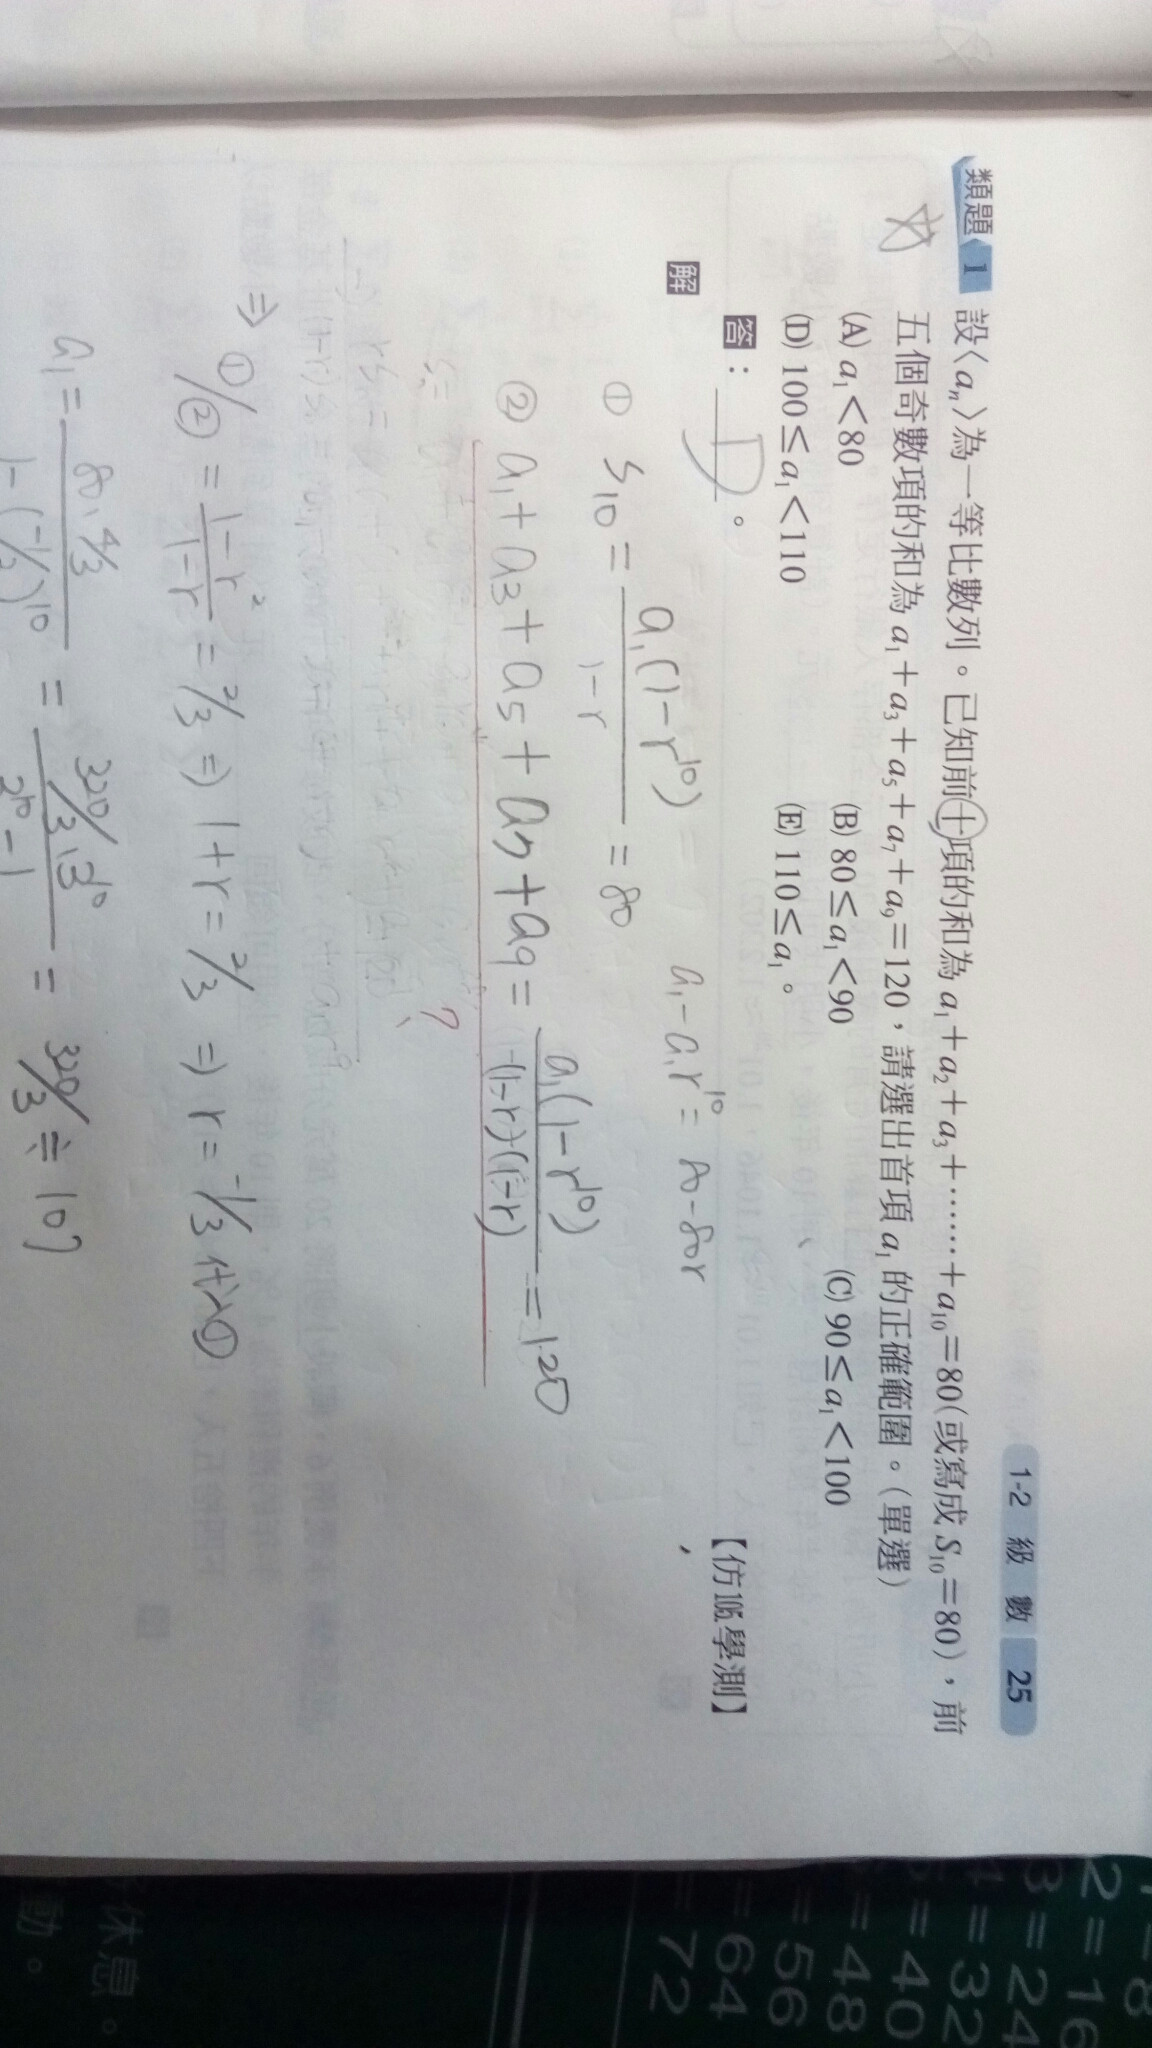 1-2 級 數 25
類題 1 設〈aₙ〉為一等比數列。已知前十項的和為 a₁+a₂+a₃+……+a₁₀=80(或寫成 S₁₀=80)，前
五個奇數項的和為 a₁+a₃+a₅+a₇+a₉=120，請選出首項 a₁ 的正確範圍。(單選)
(A) a₁<80 (B) 80≤a₁<90 (C) 90≤a₁<100
(D) 100≤a₁<110 (E) 110≤a₁。
答：D。 【仿105.學測】
解
a₁-a₁r¹⁰=80-80r
① S₁₀ = a₁(1-r¹⁰)/(1-r) = 80
② a₁+a₃+a₅+a₇+a₉ = a₁(1-r¹⁰)/ = 120
?
⇒ ①/② = (1-r²)/(1-r) = 2/3 ⇒ 1+r = 2/3 ⇒ r = -1/3 代入①
a₁ = (80·4/3)/(1-(-1/3)¹⁰) = (320/3·3¹⁰)/(3¹⁰-1) = 320/3 ≒ 107
2 = 16
3 = 24
4 = 32
= 40
= 48
= 56
= 64
= 72
休息。
動。